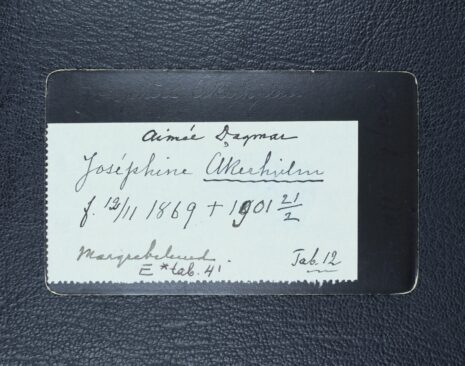 Aimée Dagmar
Joséphine Åkerhielm
f. 12/11 1869 + 1901 21/2
Margretelund.
E * tab. 41
Tab. 12